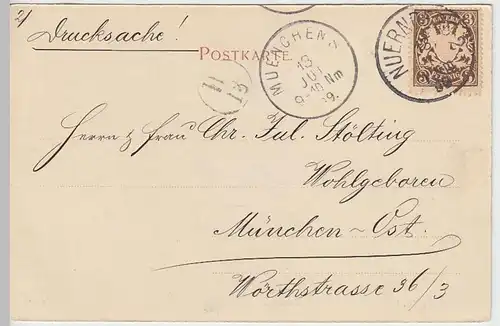 2/
Drucksache!
POSTKARTE.
MUENCHEN
13
JUL
9-10 Nm
99.
NUERNB
3
BAYERN
PFENNIG
Herrn & Frau Chr. Jul. Stölting
Wohlgeboren
München-Ost.
Wörthstrasse 36/3